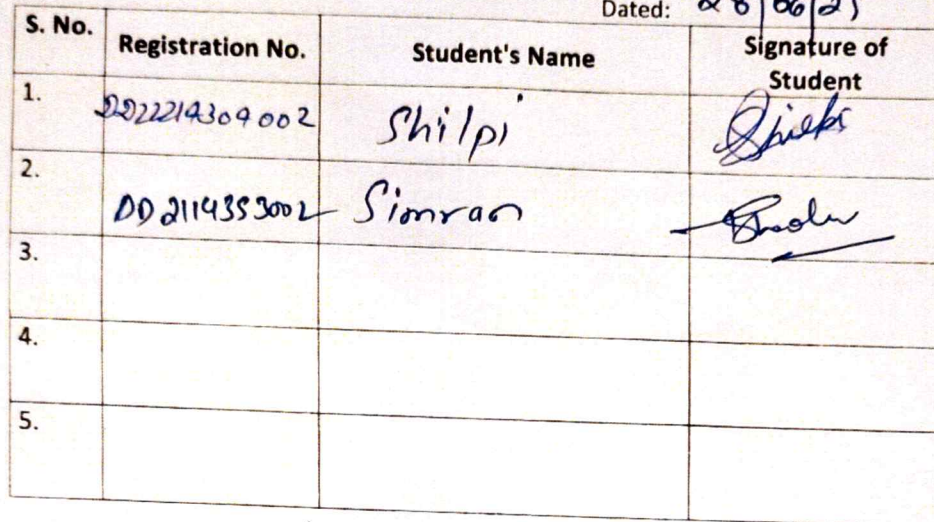 Dated: 28/06/21
S. No. Registration No. Student's Name Signature of Student
1. DD22214304002 Shilpi
2. DD2114353002 Simran
3.
4.
5.